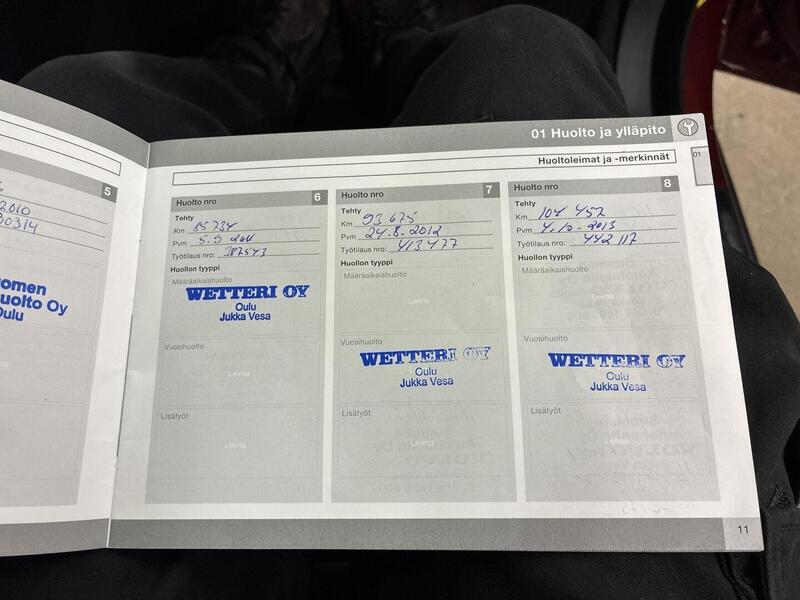 01 Huolto ja ylläpito
Huoltoleimat ja -merkinnät
01
5
2010
30314
omen
uolto Oy
Oulu
Huolto nro 6
Tehty
Km 85734
Pvm 5.9 2011
Työtilaus nro: 387543
Huollon tyyppi
Määräaikaishuolto
WETTERI OY
Oulu
Jukka Vesa
Vuosihuolto
Leima
Lisätyöt
Leima
Huolto nro 7
Tehty
Km 93 675
Pvm 24.8.2012
Työtilaus nro: 413477
Huollon tyyppi
Määräaikaishuolto
Leima
Vuosihuolto
WETTERI OY
Oulu
Jukka Vesa
Lisätyöt
Leima
Huolto nro 8
Tehty
Km 104 457
Pvm 4.10.2013
Työtilaus nro: 442 117
Huollon tyyppi
Määräaikaishuolto
Leima
Vuosihuolto
WETTERI OY
Oulu
Jukka Vesa
Lisätyöt
Leima
11